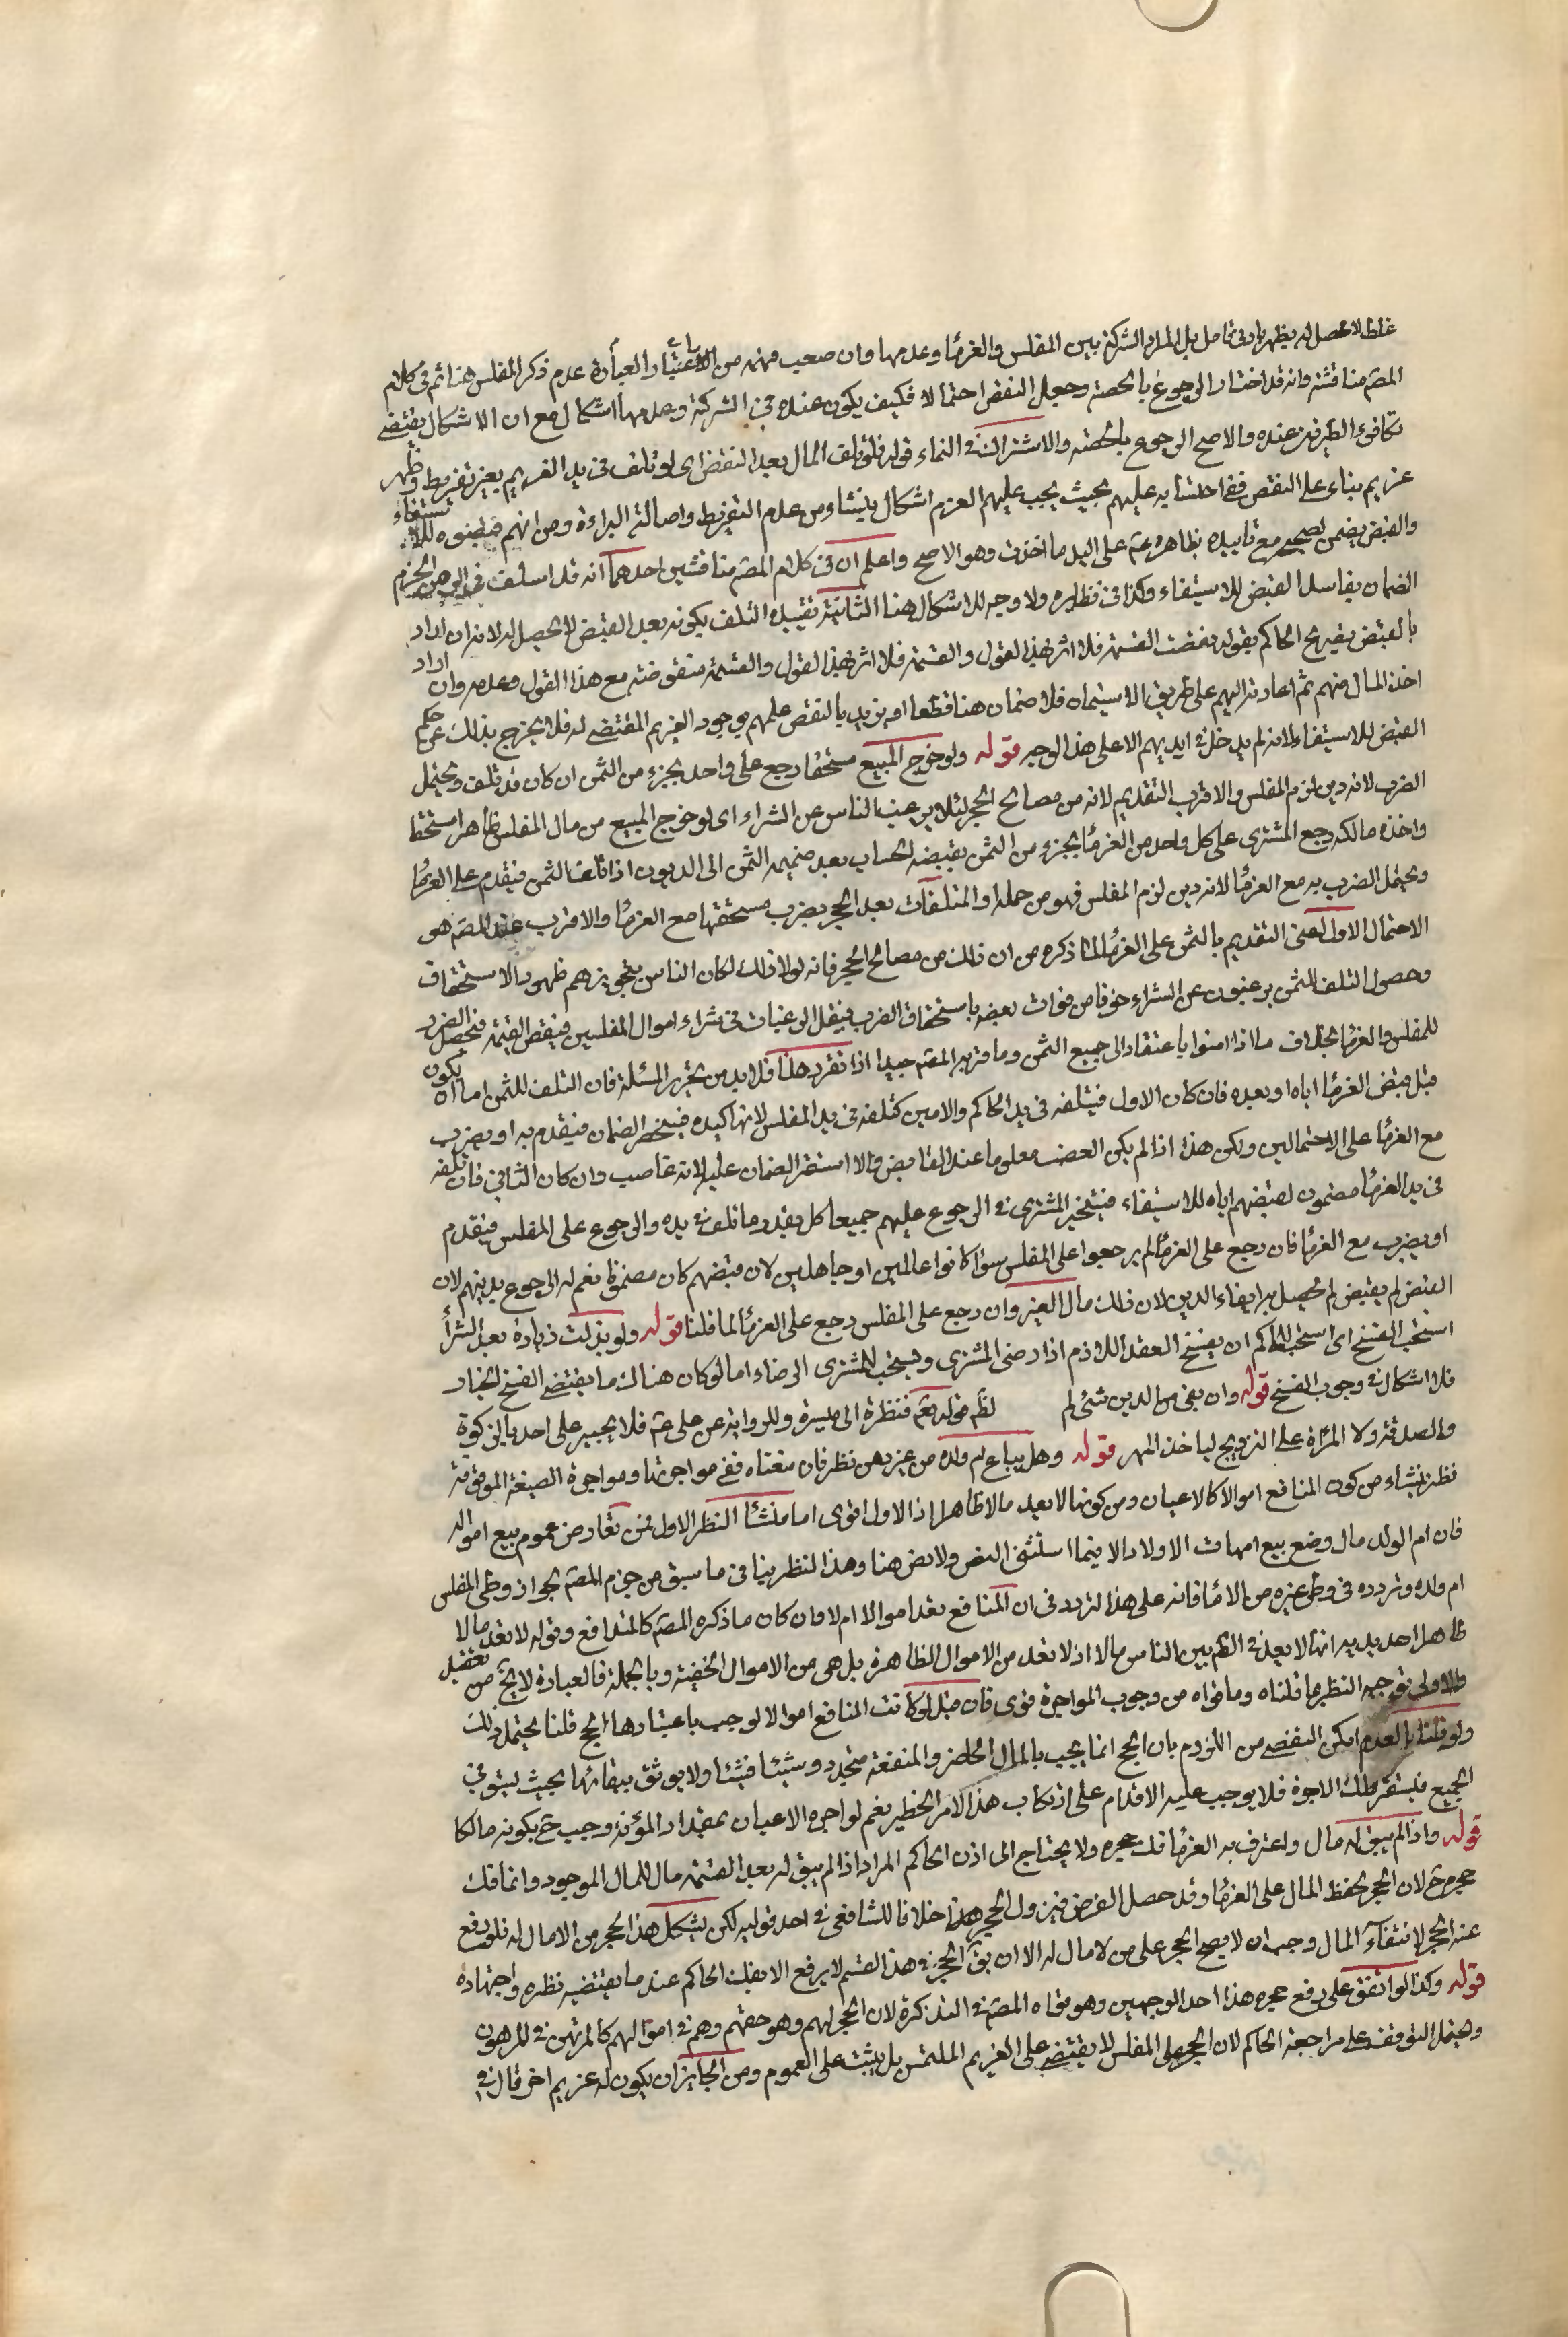 غلط لا محصل له يظهر بادنى تامل بل المراد الشركة بين المفلس والغرماء وعدمها وان صعب فهمه من العبارة عدم ذكر المفلس هنا ثم في كلام
المصه مناقشة وانه قد اختار الرجوع بالحصة وجعل النقض احتمالا فكيف يكون عنده في الشركة وعدمها اشكال مع ان الاشكال يقتضي
تكافئ الطرفين عنده والاصح الرجوع بالحصة والاشتراك في النماء قوله فلو تلف المال بعد النقض اى لو تلف في يد الغريم بغير تفريط وظهر
غريم بناء على النقض ففي احتسابه عليهم بحيث يجب عليهم الغرم اشكال ينشاء من عدم التفريط واصالة البراءة ومن انهم قبضوه للاستيفاء
والقبض يضمن بصحيحه مع تاييده بظاهر قوله عم على اليد ما اخذت وهو الاصح واعلم ان في كلام المصه مناقشتين احدهما انه قد اسلف في الجزم
الضمان بفاسد القبض للاستيفاء وكذا في نظايره ولا وجه للاشكال هنا الثانية تقييده التلف بكونه بعد القبض لا محصل له لانه ان اراد
بالقبض تصريح الحاكم بقوله نقضت القسمة فلا اثر لهذا القول والقسمة فلا اثر لهذا القول والقسمة منتقضة مع هذا القول وعدمه وان اراد
اخذ المال منهم ثم اعادته اليهم على طريق الاستيمان فلا ضمان هنا قطعا او يريد بالنقض علمهم بوجود الغريم المقتضى له فلا يخرج بذلك عن حكم
القبض للاستيفاء لانه لم يدخل في ايديهم الا على هذا الوجه قوله ولو خرج المبيع مستحقا رجع على واحد بجزء من الثمن ان كان قد تلف ويحتمل
الضرب لانه دين لزم المفلس والاقرب التقديم لانه من مصالح الحجر لئلا يرغب الناس عن الشراء اى لو خرج المبيع من مال المفلس ظاهرا مستحقا
واخذه مالكه رجع المشترى على كل واحد من الغرماء بجزء من الثمن يقتضيه الحساب بعد ضميمة الثمن الى الديون اذا تلف الثمن فيقدم على الغرماء
ويحتمل الضرب به مع الغرماء لانه دين لزم المفلس فهو من جملة والمتلفات بعد الحجر يضرب مستحقها مع الغرماء والاقرب عند المصه هى
الاحتمال الاول اعنى التقديم بالثمن على الغرماء لما ذكره من ان ذلك من مصالح الحجر فانه لولا ذلك لكان الناس بتجويزهم ظهور الاستحقاق
وحصول التلف للثمن يرغبون عن الشراء خوفا من فوات بعضه باستحقاق الضرب فيقل الرغبات في شراء اموال المفلسين فينقص القيمة فيحصل الضرر
للمفلس والغرماء بخلاف ما اذا امنوا باعتقاد الى جميع الثمن وما قربه المصه جيد اذا تقرر هذا فلا بد من تحرير المسئلة فان التلف للثمن اما ان يكون
قبل قبض الغرماء اياه او بعده فان كان الاول فيتلفه في يد الحاكم والامين كتلفه في يد المفلس لانها كيده فينحصر الضمان فيقدم به او يضرب
مع الغرماء على الاحتمالين ولكن هذا اذا لم يكن الغصب معلوما عند القابض والا استقر الضمان عليه لانه غاصب وان كان الثاني فان تلفه
في يد الغرماء مضمون لقبضهم اياه للاستيفاء فيتخير المشترى في الرجوع عليهم جميعا كل بقدر ما تلف في يده والرجوع على المفلس فيقدم
او يضرب مع الغرماء فان رجع على الغرماء لم يرجعوا على المفلس سواء كانوا عالمين او جاهلين لان قبضهم كان مضمونا نعم له الرجوع بدينهم لان
القبض لم يقتض لم يحصل به ايفاء الدين لان ذلك مال الغير وان رجع على المفلس رجع على الغرماء لما قلنا قوله ولو بذلت زيادة بعد الشراء
استحب الفسخ اى استحب للحاكم ان يفسخ العقد اللازم اذا رضى المشترى ويستحب للمشترى الرضاء اما لو كان هناك ما يقتضى الفسخ لخيار
فلا اشكال في وجوب الفسخ قوله وان بقى من الدين شئ لم لظم قوله تعم فنظرة الى ميسرة وللرواية عن على عم فلا يجبر على احد بالزكوة
والصدقة ولا المرأة على التزويج لياخذ المهر قوله وهل يباع ام ولده من غير رهن نظر فان منعناه ففي مواجرتها ومواجرة الضيعة الموقوفة
نظر ينشاء من كون المنافع اموالا كالاعيان ومن كونها لا يعد مالا ظاهرا اذ الاول اقوى اما منشأ النظر الاول فمن تعارض عموم بيع امواله
فان ام الولد مال وضع بيع امهات الاولاد الا فيما استثنى النص ولا نص هنا وهذا النظر ينافى ما سبق من جزم المصه بجواز وطى المفلس
ام ولده وتردده في وطى غيره من الاماء فانه على هذا لتردد في ان المنافع تعد اموالا ام لا وان كان ما ذكره المصه كالمتدافع وقوله لا تعد مالا
ظاهرا يريد به انها لا يعد في الظم بين الناس مالا اذ لا تعد من الاموال الظاهرة بل هى من الاموال الخفية وبالجملة فالعبارة لا يخ من تعقيد
والاولى توجيه النظر بما قلناه وما قواه من وجوب المواجرة قوى فان قيل لو كانت المنافع اموالا لوجب باعتبارها الحج قلنا يحتمل ذلك
ولو قلنا بالعدم امكن التفصى من اللزوم بان الحج انما يجب بالمال الحاضر والمنفعة متجدد وشيئا فشيئا ولا يوثق ببقائها بحيث يستوفى
الجميع فيستقر ملك الاجرة فلا يوجب عليه الاقدام على ارتكاب هذا الامر الخطير نعم لو اجره الاعيان بمقدار المؤنة وجب ح بكونه مالكا
قوله واذا لم يبق له مال واعترف به الغرماء فك حجره ولا يحتاج الى اذن الحاكم المراد اذا لم يبق له بعد القسمة مال للمال الموجود وانما فك
حجره ح لان الحجر لحفظ المال على الغرماء وقد حصل الغرض فيزول الحجر هذا خلافا للشافعي في احد قوليه لكن يشكل هذا الحجر من لا مال له فلو رفع
عنه الحجر لانتفاء المال وجب ان لا يصح الحجر على من لا مال له الا ان يق الحجر في هذا القسم لا يرفع الا بفك الحاكم عند ما يقتضيه نظره واجتهاده
قوله وكذا لو اتفق على رفع حجره هذا احد الوجهين وهو قواه المصه في التذكرة لان الحجر لهم وهو حقهم وهم في اموالهم كالمرتهن في المرهون
ويحتمل التوقف على مراجعة الحاكم لان الحجر على المفلس لا يقتضى على الغريم الملتمس بل يثبت على العموم ومن الجايز ان يكون له غريم اخر قال في